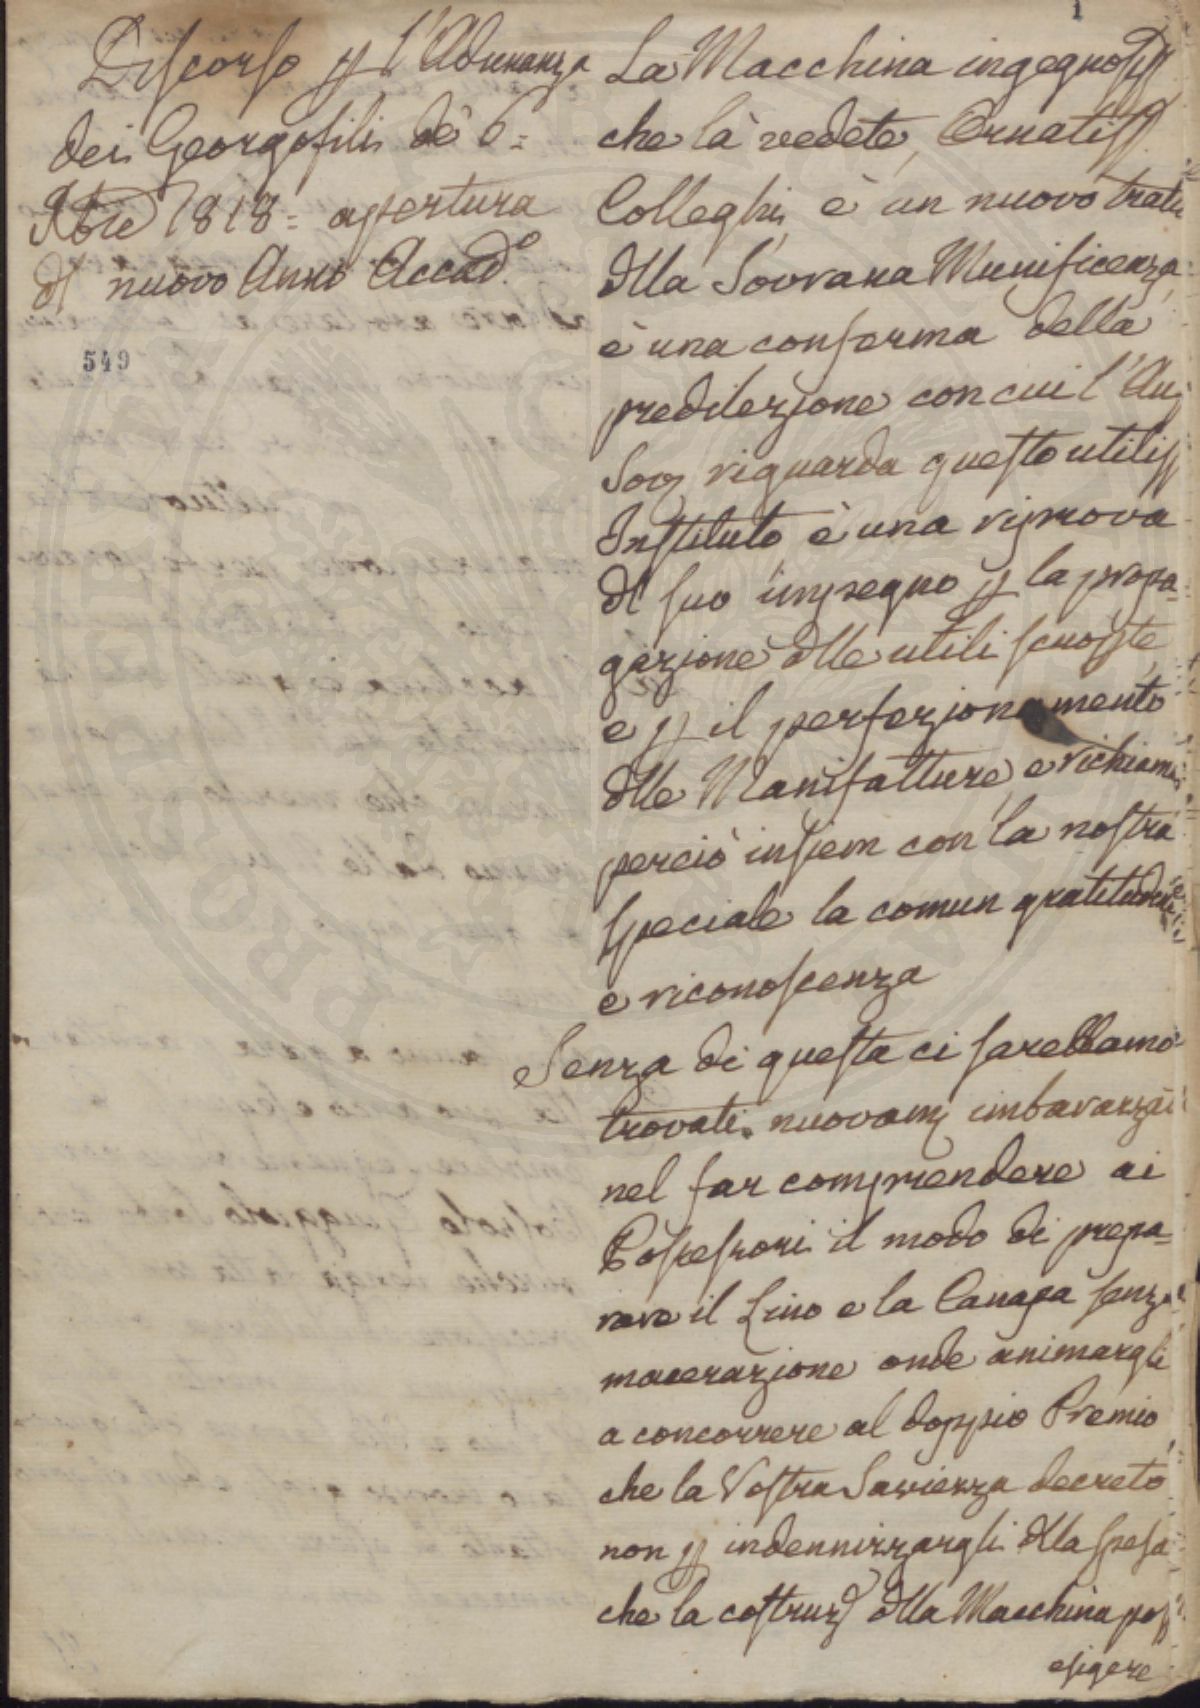 1
Discorso p l'Adunanza
dei Georgofili de 6=
Xbre 1818= apertura
dl nuovo Anno Accad.o
549
La Macchina ingegnosiss
che là vedete, Ornatiss.
Colleghi, è un nuovo tratto
dlla Sovrana Munificenza,
è una conferma della
predilezione con cui l'Aug
Sov. riguarda questo utiliss
Instituto è una riprova
dl suo impegno p la propa=
gazione dlle utili scuoste,
e p il perfezionamento
dlle Manifatture, e richiama
perciò insiem con la nostra
speciale la comun gratitudine
e riconoscenza
Senza di questa ci sarebbamo
trovati nuovam. imbarazzati
nel far comprendere ai
Possessori il modo di prepa=
rare il Lino e la Canapa senza
macerazione onde animargli
a concorrere al doppio Premio
che la Vostra Saviezza decretò
non p indennizzargli dlla spesa
che la costruz.e dlla Macchina poss
esigere